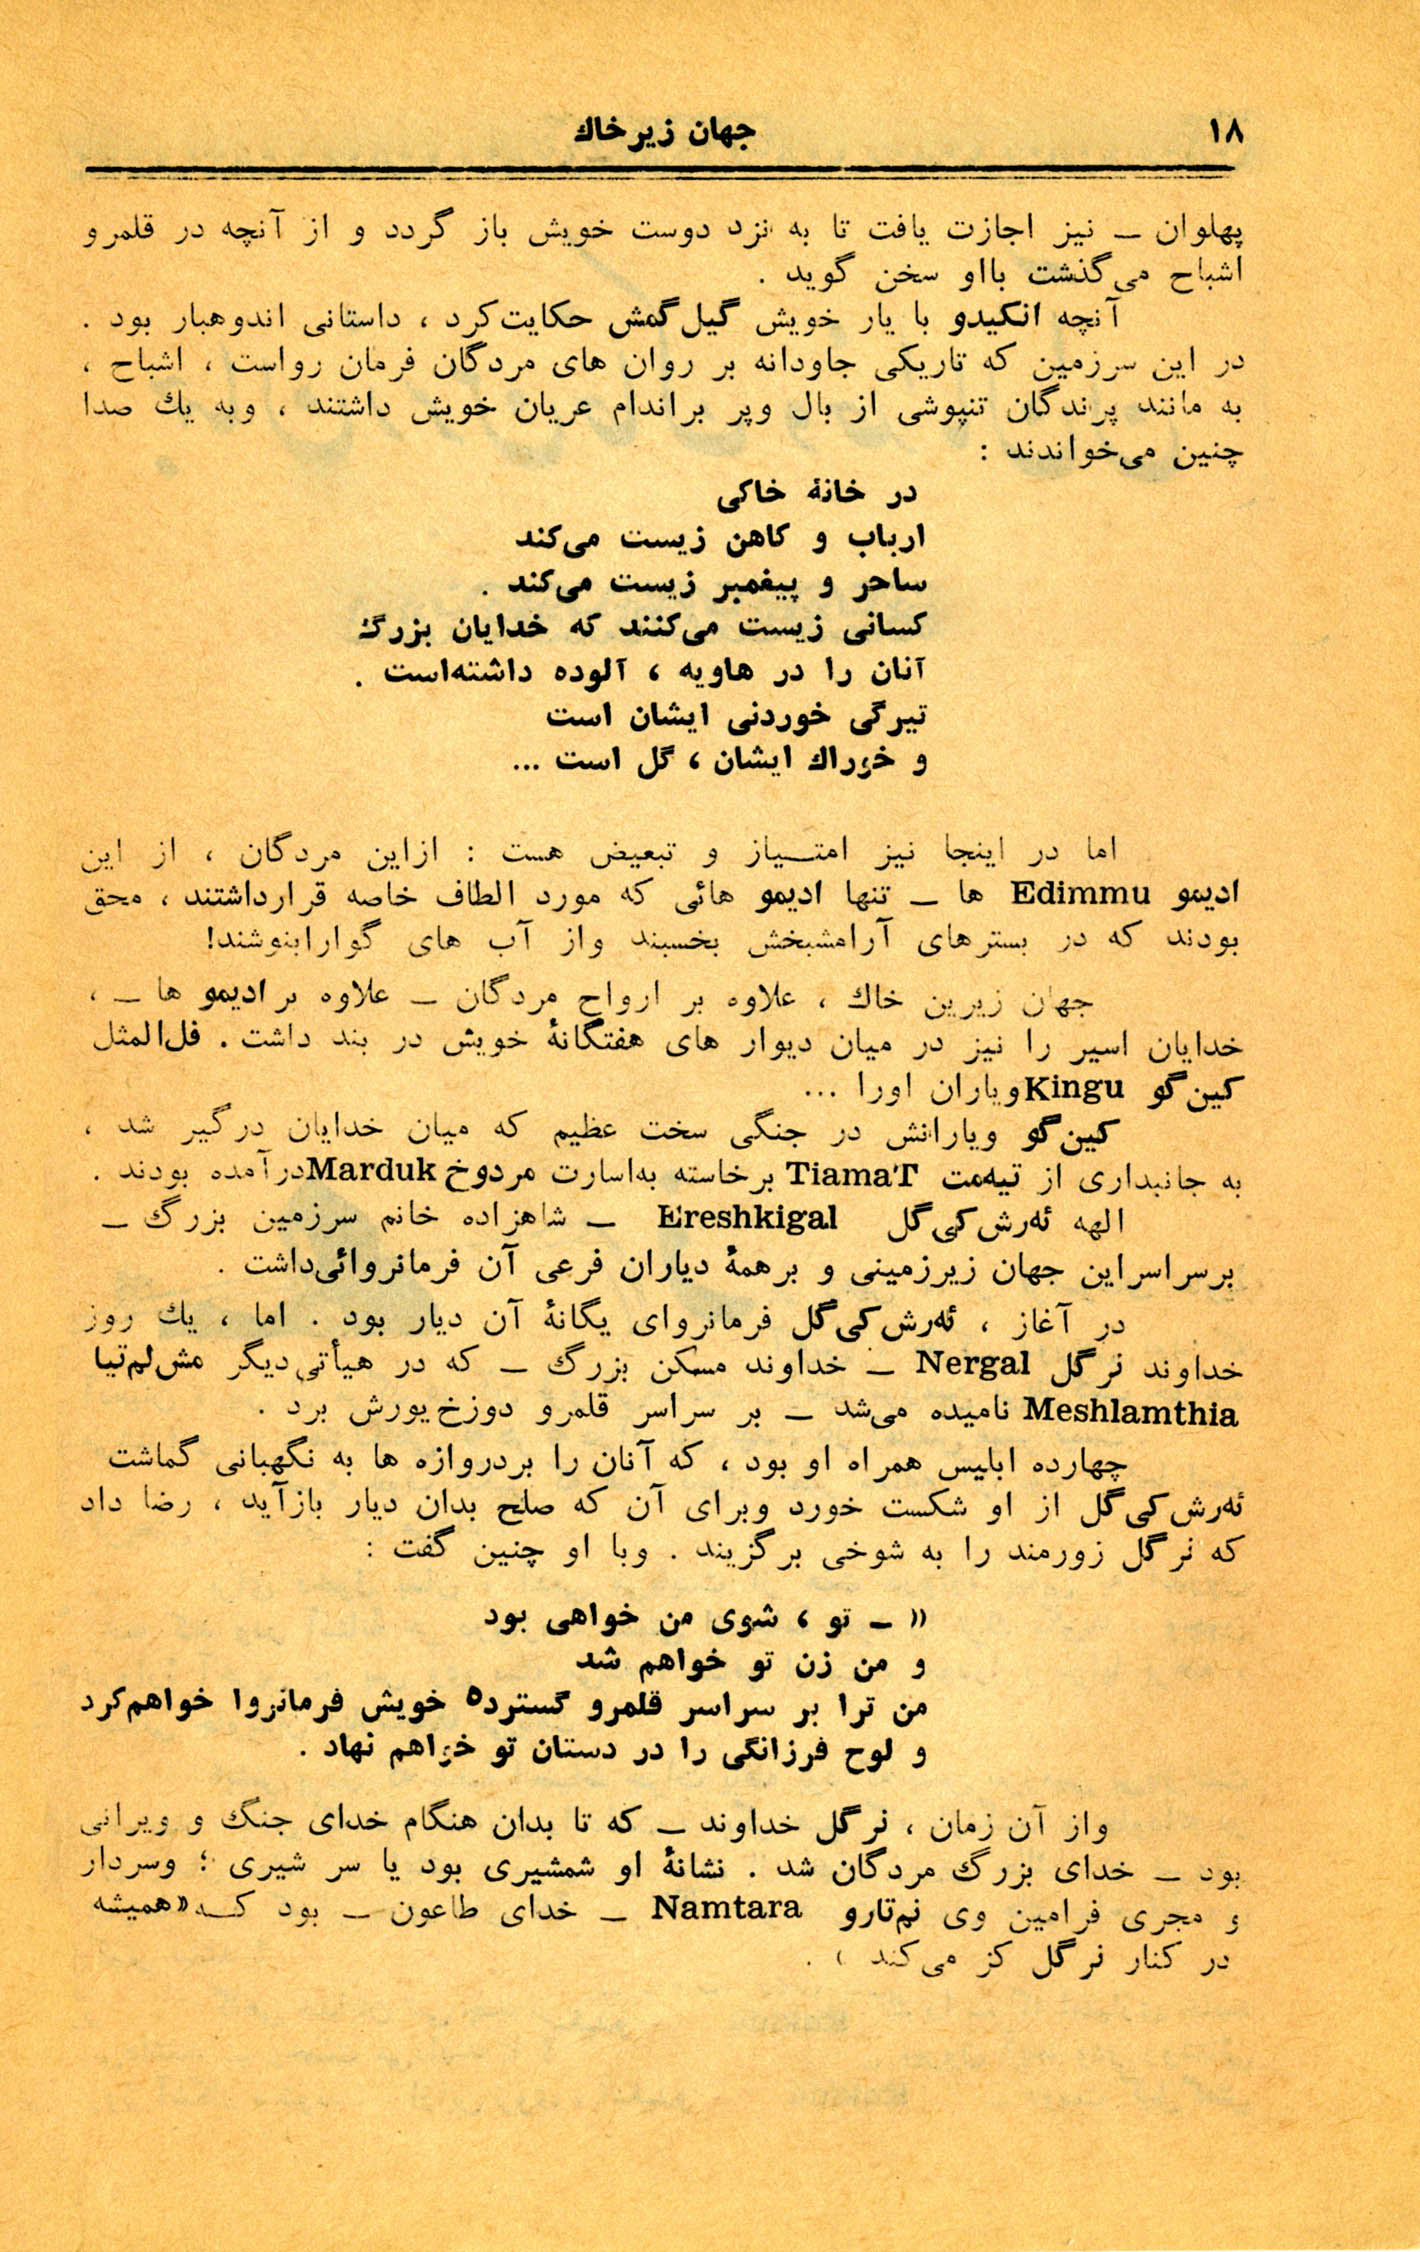 ۱۸
جهان زیرخاك
پهلوان ـ نیز اجازت یافت تا به نزد دوست خویش باز گردد و از آنچه در قلمرو
اشباح می‌گذشت بااو سخن گوید .
آنچه انکیدو با یار خویش گیل‌گمش حکایت‌کرد ، داستانی اندوهبار بود .
در این سرزمین که تاریکی جاودانه بر روان های مردگان فرمان رواست ، اشباح ،
به مانند پرندگان تنپوشی از بال وپر براندام عریان خویش داشتند ، وبه یك صدا
چنین می‌خواندند :
در خانهٔ خاکی
ارباب و کاهن زیست می‌کند
ساحر و پیغمبر زیست می‌کند .
کسانی زیست می‌کنند که خدایان بزرگ
آنان را در هاویه ، آلوده داشته‌است .
تیرگی خوردنی ایشان است
و خوراك ایشان ، گل است ...
اما در اینجا نیز امتـیاز و تبعیض هست : ازاین مردگان ، از این
ادیمو Edimmu ها ـ تنها ادیمو هائی که مورد الطاف خاصه قرارداشتند ، محق
بودند که در بسترهای آرامشبخش بخسبند واز آب های گوارابنوشند!
جهان زیرین خاك ، علاوه بر ارواح مردگان ـ علاوه بر ادیمو ها ـ ،
خدایان اسیر را نیز در میان دیوار های هفتگانهٔ خویش در بند داشت . فل‌المثل
کین‌گو Kingu ویاران اورا ...
کین‌گو ویارانش در جنگی سخت عظیم که میان خدایان درگیر شد ،
به جانبداری از تیه‌مت TiamaT برخاسته به‌اسارت مردوخ Marduk درآمده بودند .
الهه ئه‌رش‌کی‌گل Ereshkigal ـ شاهزاده خانم سرزمین بزرگ ـ
برسراسراین جهان زیرزمینی و برهمهٔ دیاران فرعی آن فرمانروائی‌داشت .
در آغاز ، ئه‌رش‌کی‌گل فرمانروای یگانهٔ آن دیار بود . اما ، یك روز
خداوند نرگل Nergal ـ خداوند مسکن بزرگ ـ که در هیأتی‌دیگر مش‌لم‌تیا
Meshlamthia نامیده می‌شد ـ بر سراسر قلمرو دوزخ‌یورش برد .
چهارده ابلیس همراه او بود ، که آنان را بردروازه ها به نگهبانی گماشت
ئه‌رش‌کی‌گل از او شکست خورد وبرای آن که صلح بدان دیار بازآید ، رضا داد
که نرگل زورمند را به شوخی برگزیند . وبا او چنین گفت :
« ـ تو ، شوی من خواهی بود
و من زن تو خواهم شد
من ترا بر سراسر قلمرو گسترده خویش فرمانروا خواهم‌کرد
و لوح فرزانگی را در دستان تو خواهم نهاد .
واز آن زمان ، نرگل خداوند ـ که تا بدان هنگام خدای جنگ و ویرانی
بود ـ خدای بزرگ مردگان شد . نشانهٔ او شمشیری بود یا سر شیری ؛ وسردار
و مجری فرامین وی نم‌تارو Namtara ـ خدای طاعون ـ بود کـه «همیشه
در کنار نرگل کز می‌کند » .